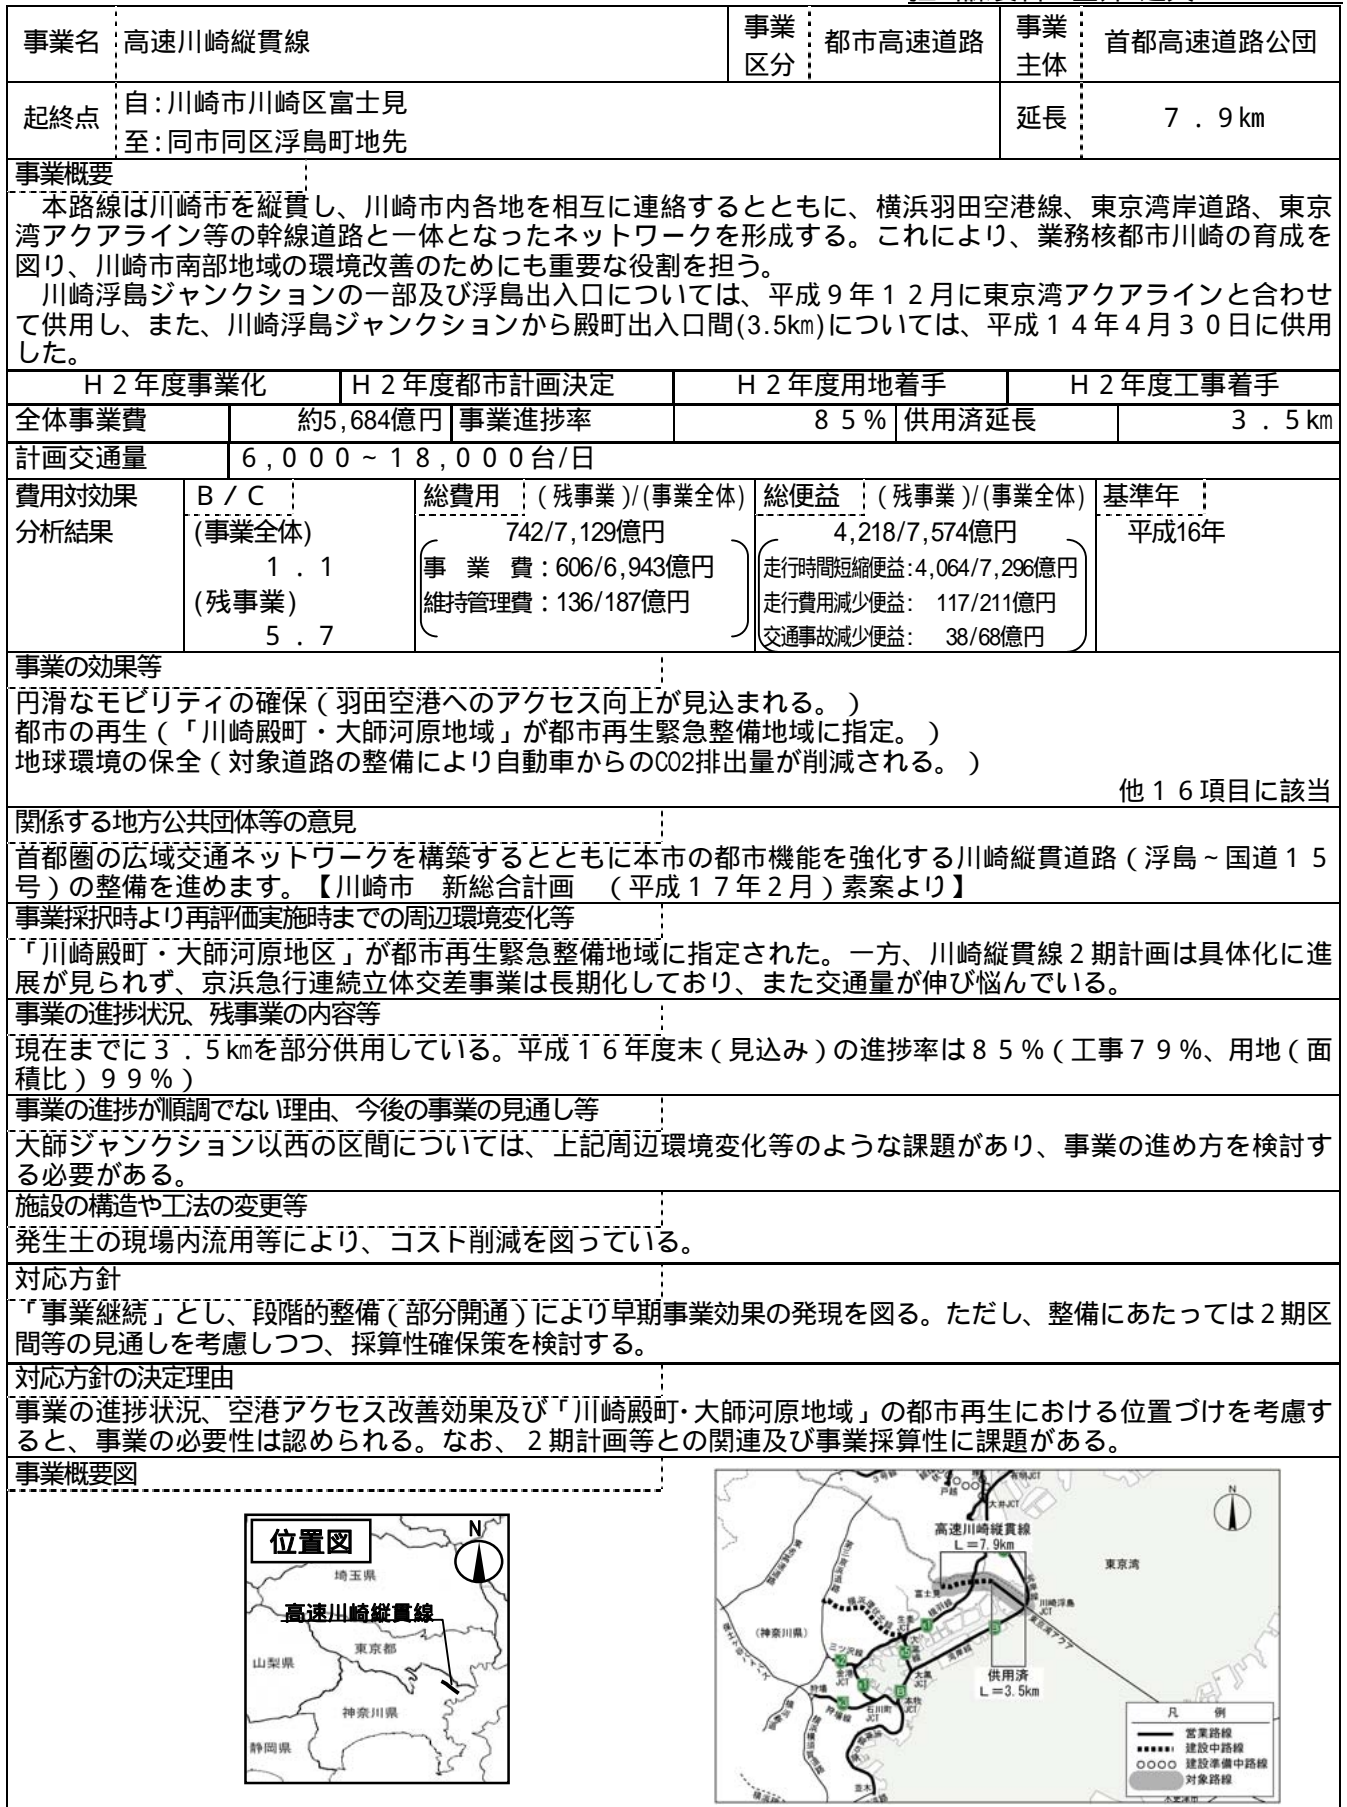 事業名 高速川崎縦貫線 事業区分 都市高速道路 事業主体 首都高速道路公団
起終点 自:川崎市川崎区富士見
至:同市同区浮島町地先
延長 7.9㎞
事業概要
本路線は川崎市を縦貫し、川崎市内各地を相互に連絡するとともに、横浜羽田空港線、東京湾岸道路、東京
湾アクアライン等の幹線道路と一体となったネットワークを形成する。これにより、業務核都市川崎の育成を
図り、川崎市南部地域の環境改善のためにも重要な役割を担う。
川崎浮島ジャンクションの一部及び浮島出入口については、平成9年12月に東京湾アクアラインと合わせ
て供用し、また、川崎浮島ジャンクションから殿町出入口間(3.5㎞)については、平成14年4月30日に供用
した。
H2年度事業化 H2年度都市計画決定 H2年度用地着手 H2年度工事着手
全体事業費 約5,684億円 事業進捗率 85% 供用済延長 3.5㎞
計画交通量 6,000~18,000台/日
費用対効果
分析結果
B/C
(事業全体)
1.1
(残事業)
5.7
総費用 (残事業)/(事業全体)
742/7,129億円
事業費:606/6,943億円
維持管理費:136/187億円
総便益 (残事業)/(事業全体)
4,218/7,574億円
走行時間短縮便益:4,064/7,296億円
走行費用減少便益: 117/211億円
交通事故減少便益: 38/68億円
基準年
平成16年
事業の効果等
円滑なモビリティの確保(羽田空港へのアクセス向上が見込まれる。)
都市の再生(「川崎殿町・大師河原地域」が都市再生緊急整備地域に指定。)
地球環境の保全(対象道路の整備により自動車からのCO2排出量が削減される。)
他16項目に該当
関係する地方公共団体等の意見
首都圏の広域交通ネットワークを構築するとともに本市の都市機能を強化する川崎縦貫道路(浮島~国道15
号)の整備を進めます。【川崎市 新総合計画 (平成17年2月)素案より】
事業採択時より再評価実施時までの周辺環境変化等
「川崎殿町・大師河原地区」が都市再生緊急整備地域に指定された。一方、川崎縦貫線2期計画は具体化に進
展が見られず、京浜急行連続立体交差事業は長期化しており、また交通量が伸び悩んでいる。
事業の進捗状況、残事業の内容等
現在までに3.5㎞を部分供用している。平成16年度末(見込み)の進捗率は85%(工事79%、用地(面
積比)99%)
事業の進捗が順調でない理由、今後の事業の見通し等
大師ジャンクション以西の区間については、上記周辺環境変化等のような課題があり、事業の進め方を検討す
る必要がある。
施設の構造や工法の変更等
発生土の現場内流用等により、コスト削減を図っている。
対応方針
「事業継続」とし、段階的整備(部分開通)により早期事業効果の発現を図る。ただし、整備にあたっては2期区
間等の見通しを考慮しつつ、採算性確保策を検討する。
対応方針の決定理由
事業の進捗状況、空港アクセス改善効果及び「川崎殿町・大師河原地域」の都市再生における位置づけを考慮す
ると、事業の必要性は認められる。なお、2期計画等との関連及び事業採算性に課題がある。
事業概要図
位置図
N
埼玉県
高速川崎縦貫線
東京都
山梨県
神奈川県
静岡県
戸越
大井JCT
N
高速川崎縦貫線
L=7.9km
東京湾
富士見
川崎浮島
JCT
東京湾アクア
第三京浜道路
横羽線
生麦
JCT
(神奈川県)
三ツ沢線
金港
JCT
湾岸線
大黒
JCT
供用済
L=3.5km
狩場
狩場線
石川町
JCT
本牧
JCT
並木
凡 例
営業路線
建設中路線
建設準備中路線
対象路線